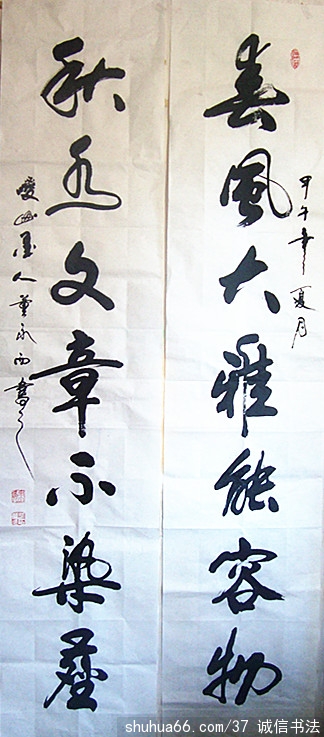 甲午年夏月
春風大雅能容物
秋水文章不染塵
墨人董永西書
shuhua66.com/37 诚信书法